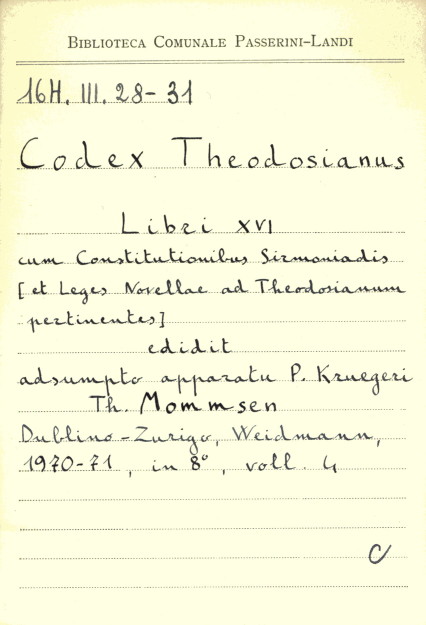 BIBLIOTECA COMUNALE PASSERINI-LANDI
16H. III. 28-31
Codex Theodosianus
Libri XVI
cum Constitutionibus Sirmoniadis
[et Leges Novellae ad Theodosianum
pertinentes]
edidit
adsumpto apparatu P. Kruegeri
Th. Mommsen
Dublino-Zurigo, Weidmann,
1970-71, in 8°, voll. 4
C